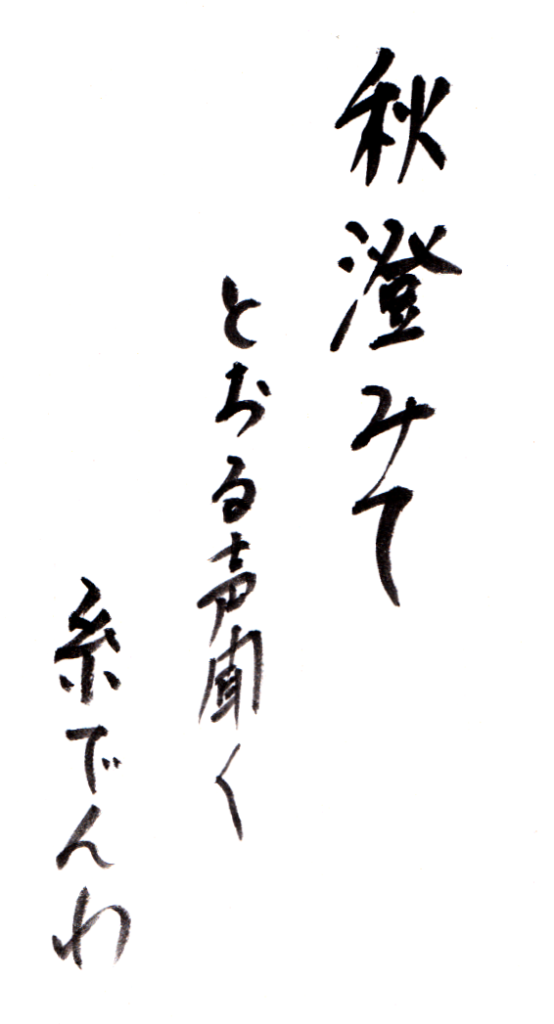 秋澄みて
とおる声聞く
糸でんわ